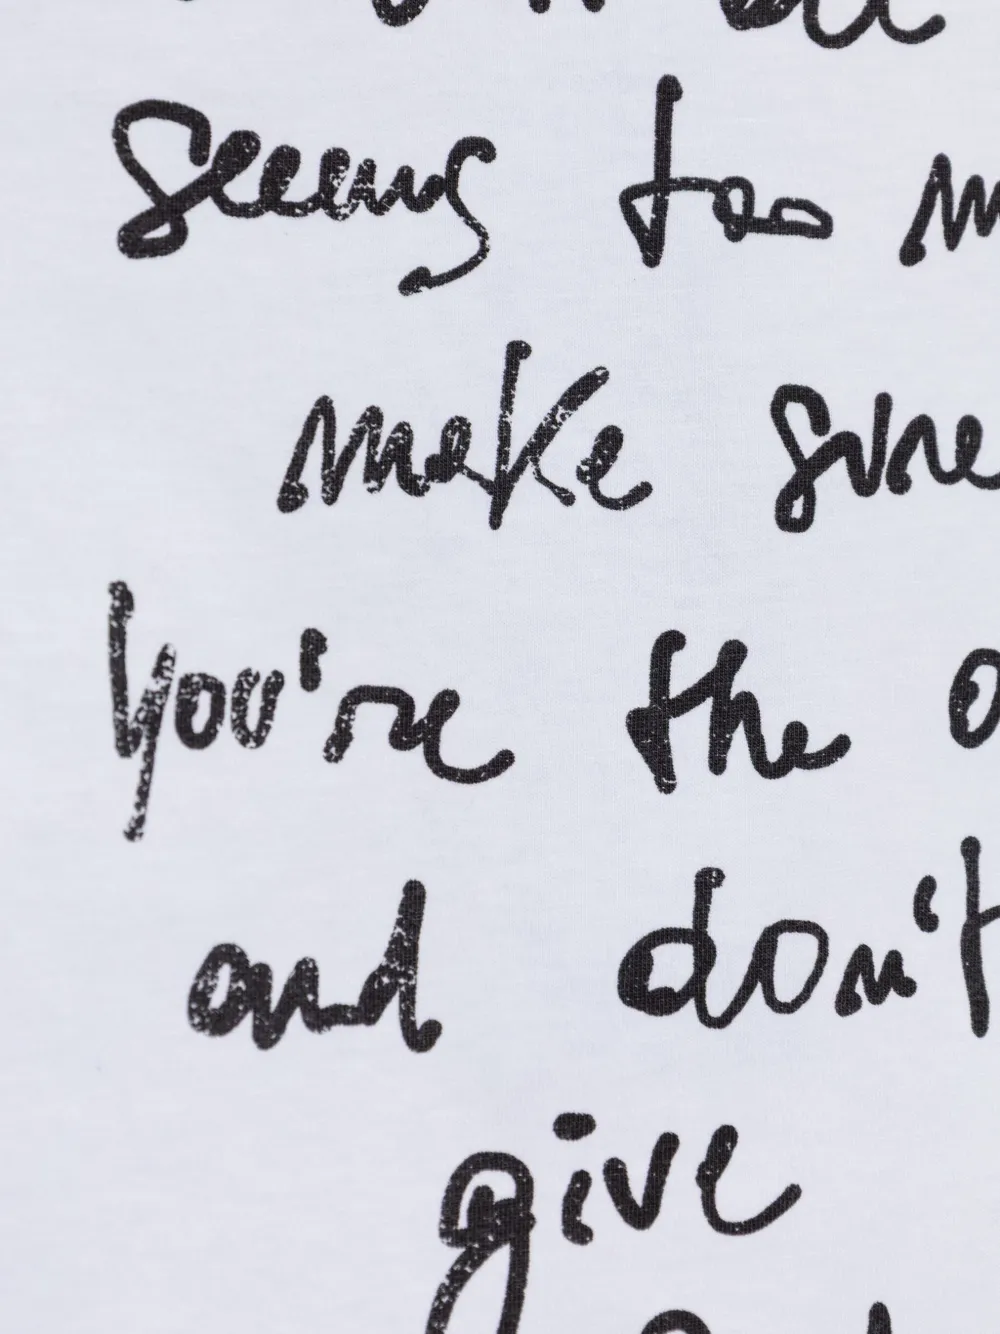 seems too m
make sure
you're the o
and don't
give